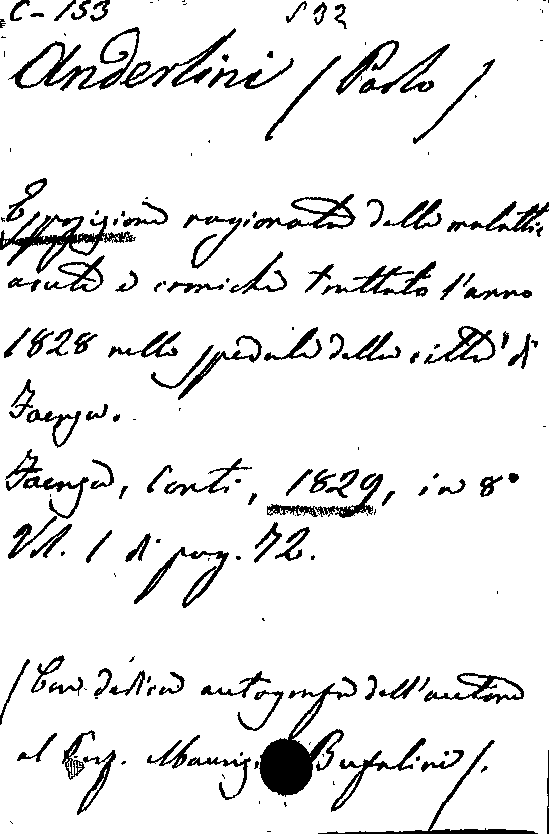 C-153 S 32
Anderlini (Paolo)
Esposizione ragionata delle malattie
acute e croniche trattate l'anno
1828 nello spedale della città di
Faenza.
Faenza, Conti, 1829, in 8°
Vol. 1 di pag. 72.
(Con dedica autografa dell'autore
al Mauriz. Bufalini).